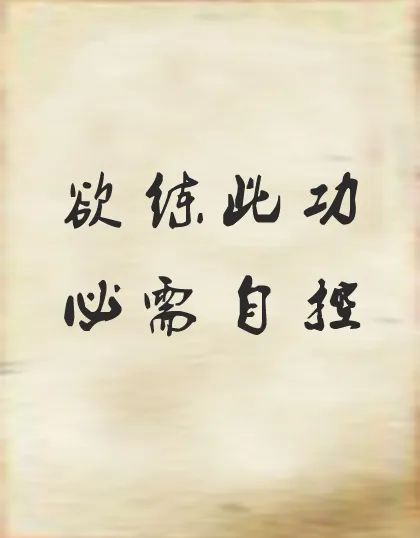 欲练此功
必需自控